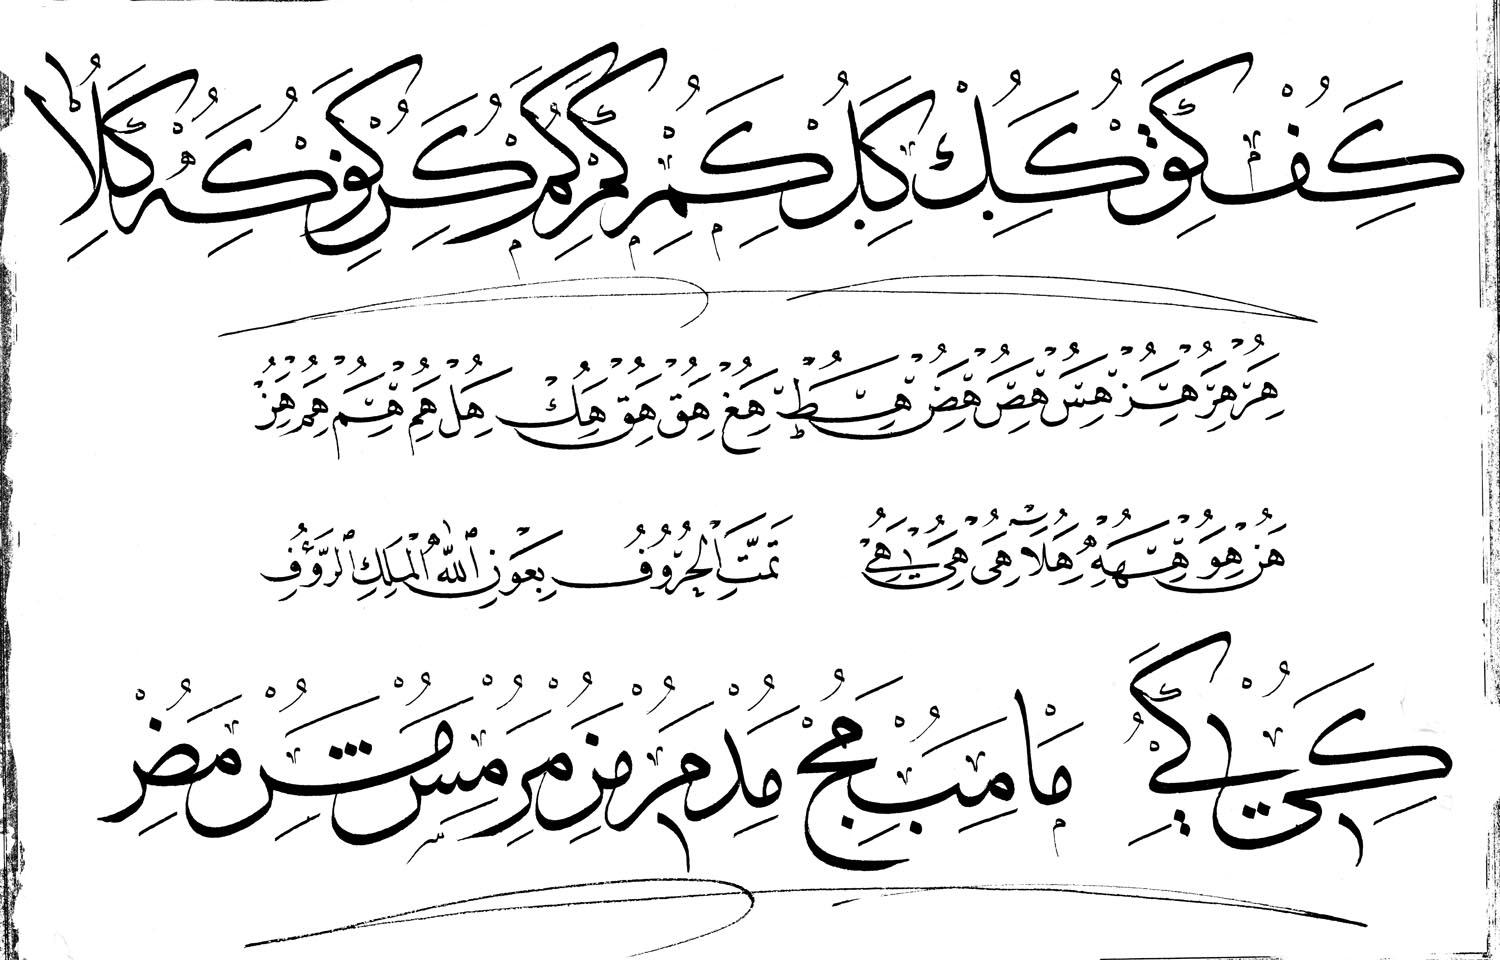 كف كق كك كل كم كم كم كن كو كه كلا
هر هر هز هس هص هض هط هغ هق هق هك هل هم هم هم هن
هن هو هه هلا هى هى هى تَمَّتِ الْحُرُوفُ بِعَوْنِ اللّٰهِ الْمَلِكِ الرَّؤُفِ
كى كي ما مب مج مد مر مز مر مس مش مض